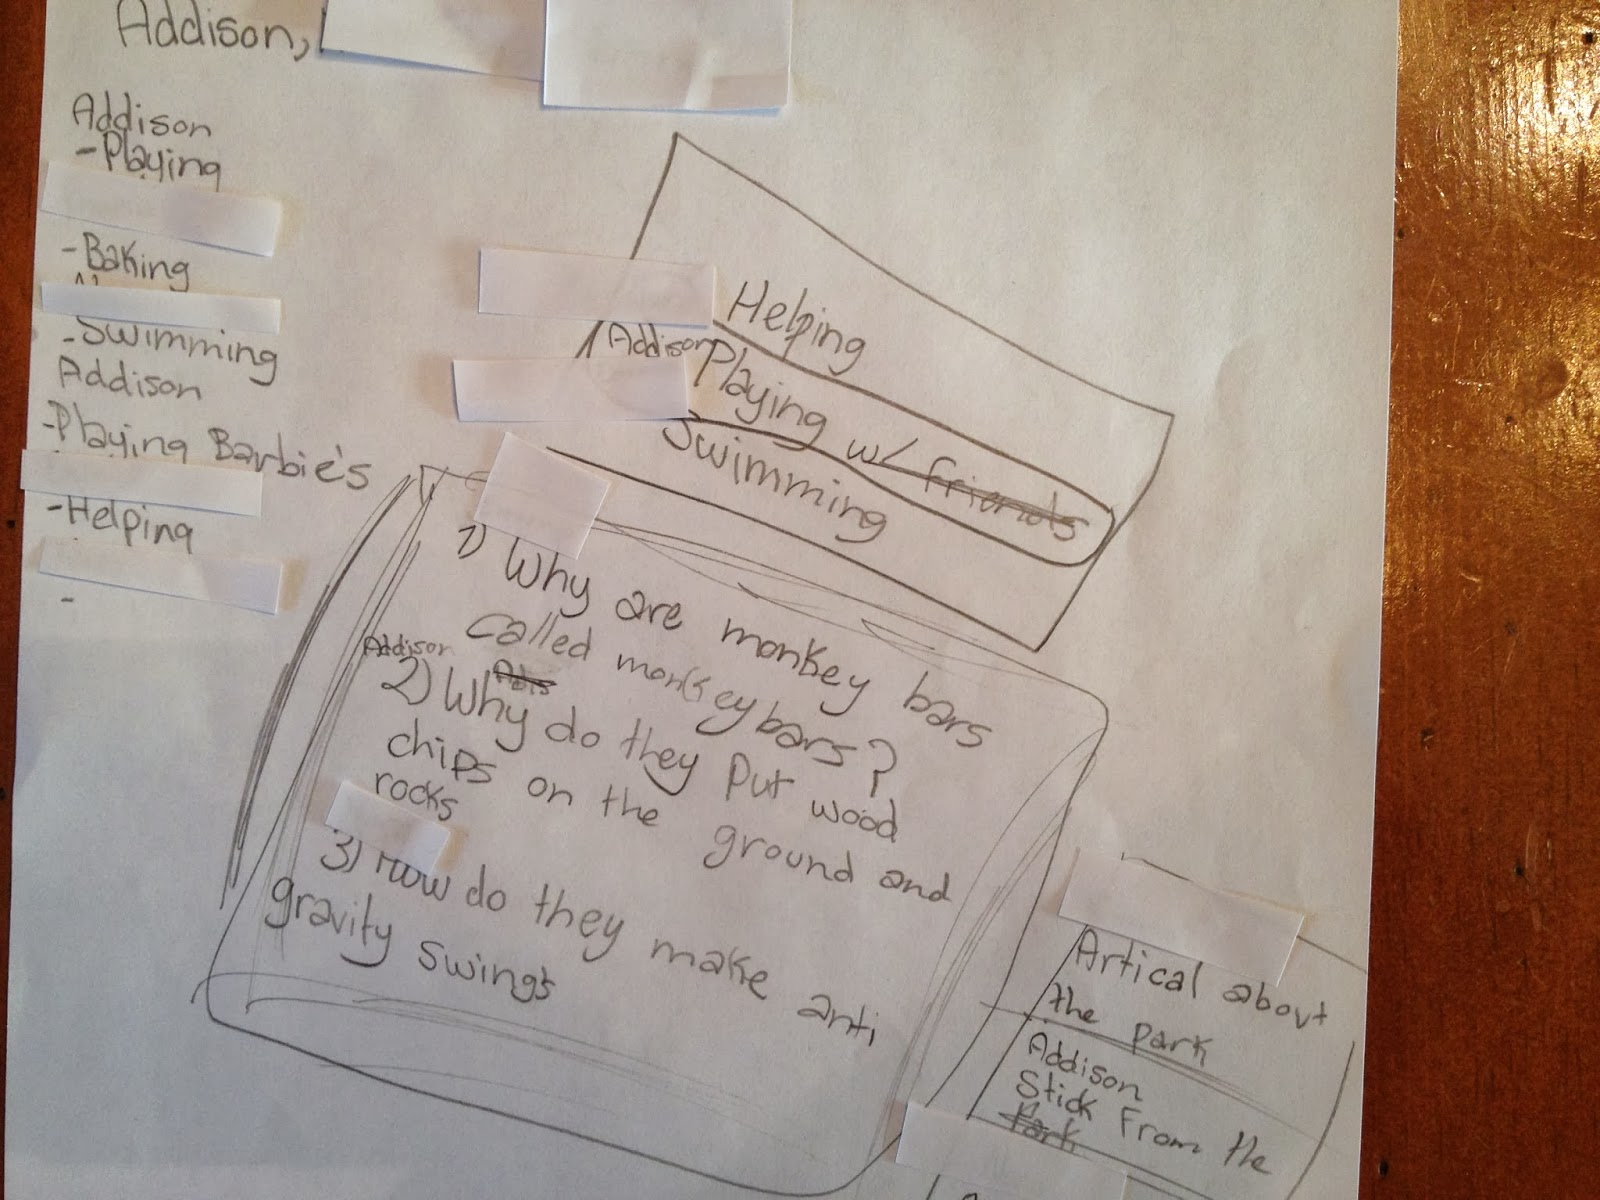 Addison,
Addison
-Playing
-Baking
-Swimming
Addison
-Playing Barbie's
-Helping
-
Helping
Addison Playing w/ friends
Swimming
1) Why are monkey bars
called monkey bars?
Addison
2) Why do they Put wood
chips on the ground and
rocks
3) How do they make anti
gravity swings
Artical about
the park
Addison
Stick From the
Park